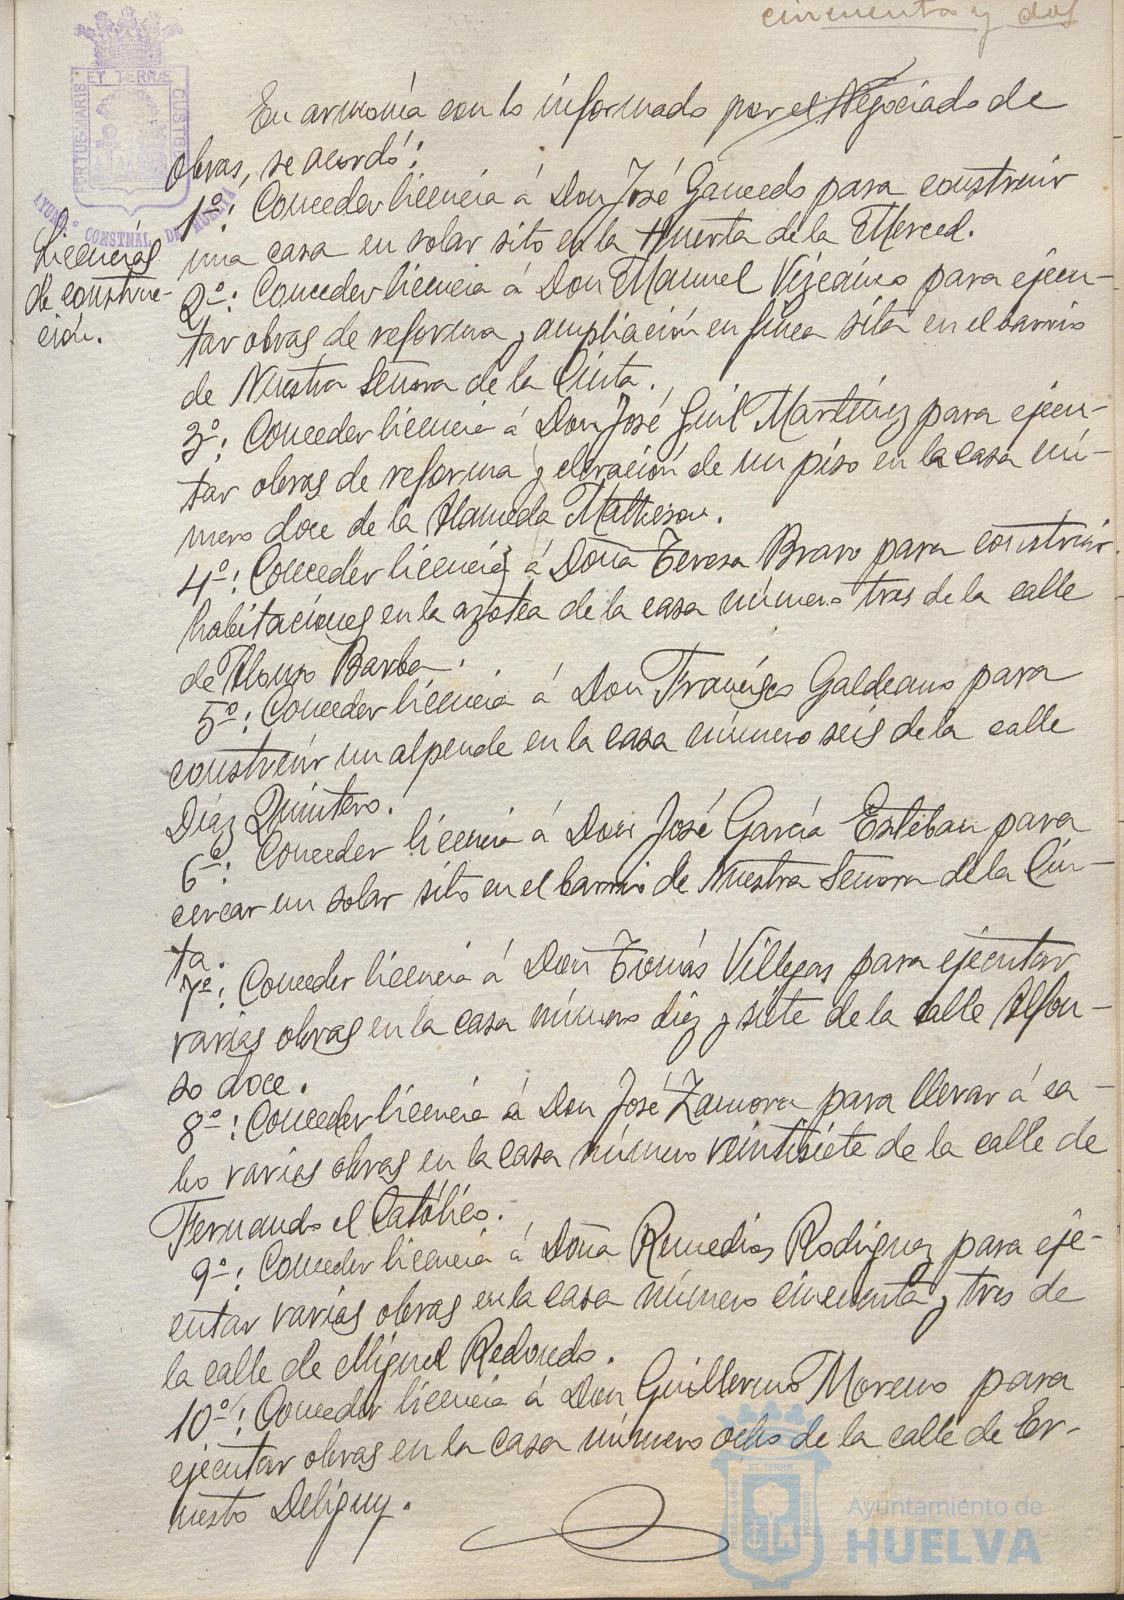 cincuenta y dos
ET TERRÆ
PORTUS MARIS
CUSTODIA
AYUNT.º CONSTNAL DE HUELVA
Licencias
de construc-
ción.
En armonía con lo informado por el Negociado de
obras, se acordó:
1º: Conceder licencia á Don José Gancedo para construir
una casa en solar sito en la Huerta de la Merced.
2º: Conceder licencia á Don Manuel Vizcaino para ejecu-
tar obras de reforma y ampliación en finca sita en el barrio
de Nuestra Señora de la Cinta.
3º: Conceder licencia á Don José Guil Martínez para ejecu-
tar obras de reforma y elevación de un piso en la casa nú-
mero doce de la Alameda Matheson.
4º: Conceder licencia á Doña Teresa Bravo para construir
habitaciones en la azotea de la casa número tres de la calle
de Alonso Barba.
5º: Conceder licencia á Don Francisco Galdeano para
construir un alpende en la casa número seis de la calle
Díaz Quintero.
6º: Conceder licencia á Don José García Esteban para
cercar un solar sito en el barrio de Nuestra Señora de la Cin-
ta.
7º: Conceder licencia á Don Tomás Villegas para ejecutar
varias obras en la casa número diez y siete de la calle Alfon-
so doce.
8º: Conceder licencia á Don José Zamora para llevar á ca-
bo varias obras en la casa número veintisiete de la calle de
Fernando el Católico.
9º: Conceder licencia á Doña Remedios Rodriguez para eje-
cutar varias obras en la casa número cincuenta y tres de
la calle de Miguel Redondo.
10º: Conceder licencia á Don Guillermo Moreno para
ejecutar obras en la casa número ocho de la calle de Er-
nesto Deligny.
Ayuntamiento de
HUELVA